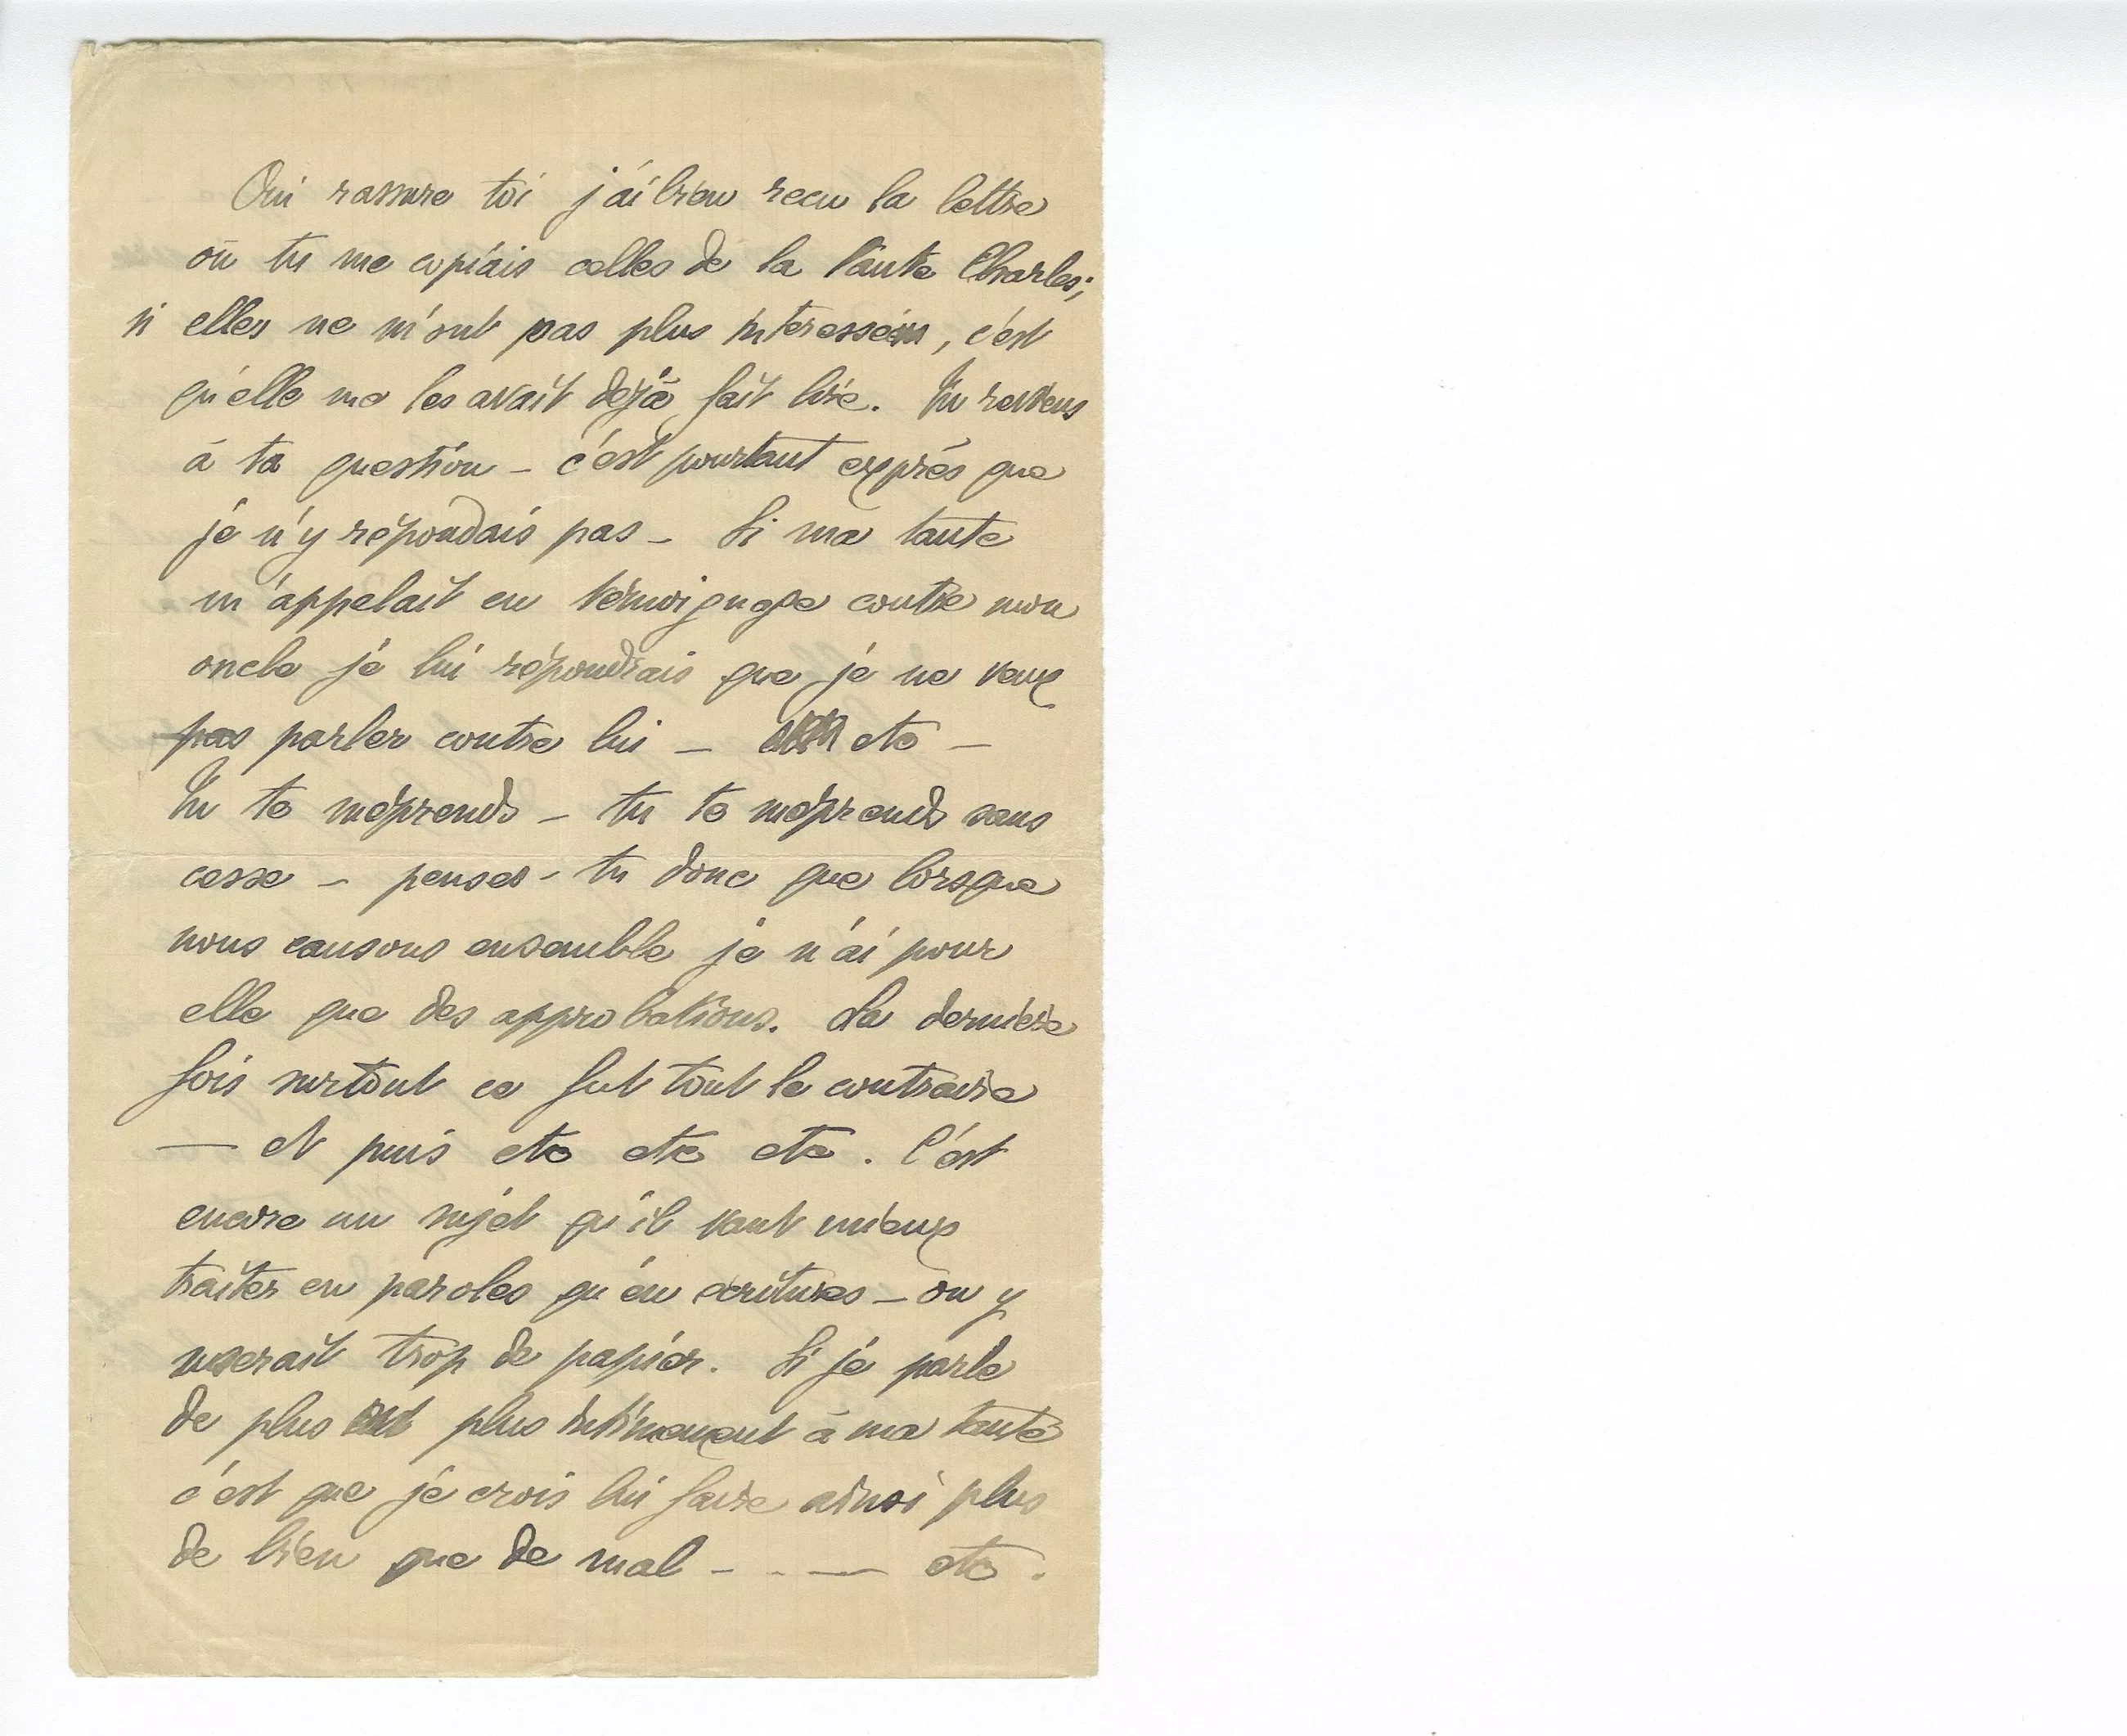 Oui rassure toi j'ai bien reçu la lettre
où tu me copiais celles de la Tante Charles;
si elles ne m'ont pas plus intéressées, c'est
qu'elle me les avait déjà fait lire. Tu reviens
à ta question – c'est pourtant exprès que
je n'y répondais pas – Si ma tante
m'appelait en témoignage contre mon
oncle je lui répondrais que je ne veux
pas parler contre lui – etc –
Tu te méprends – tu te méprends sans
cesse – penses-tu donc que lorsque
nous causons ensemble je n'ai pour
elle que des approbations. La dernière
fois surtout ce fut tout le contraire
— et puis etc etc etc. C'est
encore un sujet qu'il vaut mieux
traiter en paroles qu'en écritures – on y
userait trop de papier. Si je parle
de plus plus intimement à ma tante
c'est que je crois lui faire ainsi plus
de bien que de mal - - — etc.